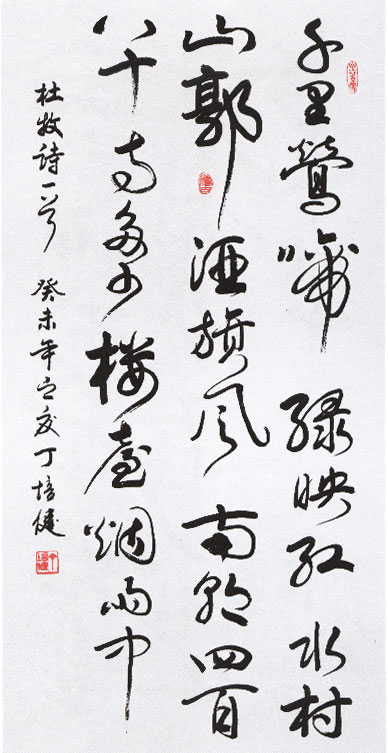 千里鶯啼绿映红水村
山郭酒旗风南朝四百
八十寺多少楼臺烟雨中
杜牧诗一首 癸未年之夏丁培健